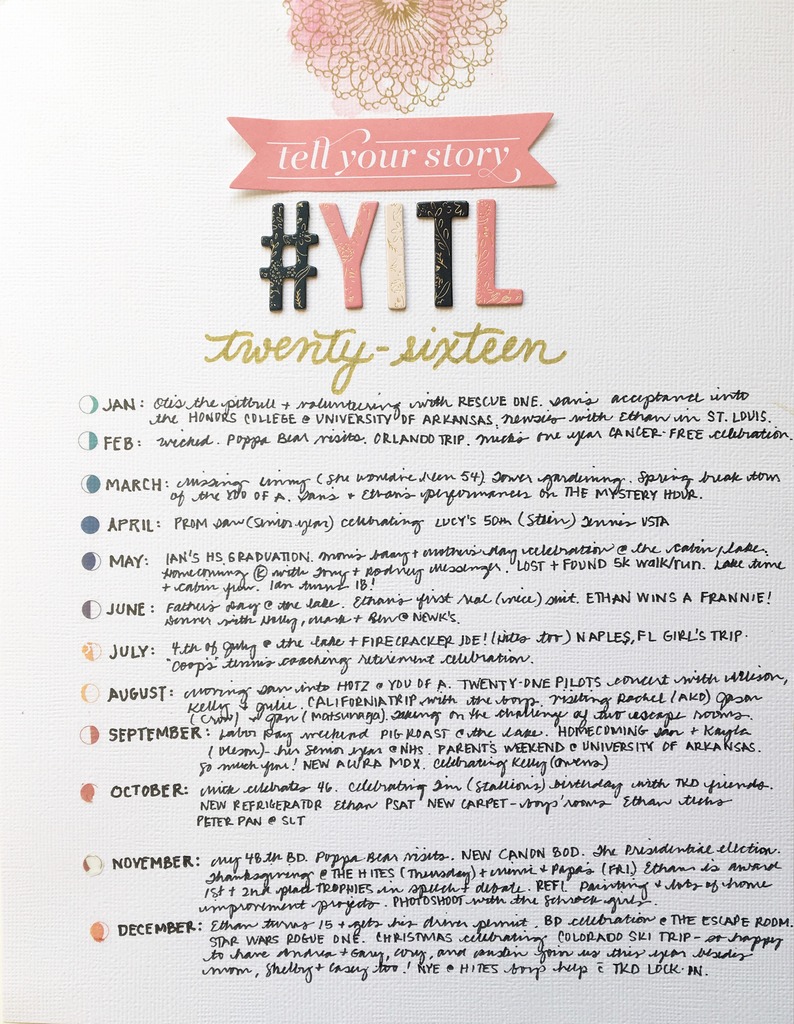 tell your story
#YITL
twenty-sixteen
JAN: Otis the pitbull + volunteering with RESCUE ONE. Ian's acceptance into
the HONORS COLLEGE @ UNIVERSITY OF ARKANSAS. Newsies with Ethan in ST. LOUIS.
FEB: Wicked. Poppa Bear visits. ORLANDO TRIP. Mick's one year CANCER-FREE celebration.
MARCH: Missing (She would've been 54) Tower gardening. Spring break tour
of the YOU OF A. Ian's + Ethan's performances on THE MYSTERY HOUR.
APRIL: PROM Ian (Senior year) celebrating LUCY'S 50th (Stein) Tennis USTA
MAY: IAN'S HS GRADUATION. Mom's bday + mother's day celebration @ the cabin/lake.
Homecoming with Tony + Rodney Messenger. LOST + FOUND 5K WALK/run. Lake time
+ cabin fun. Ian turns 18!
JUNE: Father's Day @ the lake. Ethan's first real (nice) suit. ETHAN WINS A FRANNIE!
Dinner with Holly, Mark + Ben @ NEWK'S.
JULY: 4th of July @ the lake + FIRECRACKER JOE! (Hites too) NAPLES, FL GIRL'S TRIP.
"Coop's" tennis coaching retirement celebration.
AUGUST: Moving Ian into HOTZ @ YOU OF A. TWENTY-ONE PILOTS concert with Allison,
Kelly + Julie. CALIFORNIA TRIP with the boys. Visiting Rachel (AKD) Jason
(Crow) + Jan (Matsunaga). Taking on the challenge of two escape rooms.
SEPTEMBER: Labor Day weekend PIG ROAST @ the lake. HOMECOMING Ian + Kayla
(Oleson) - her senior year @ NHS. PARENT'S WEEKEND @ UNIVERSITY OF ARKANSAS.
So much fun! NEW ACURA MDX. Celebrating Kelly (Owens)
OCTOBER: Mick celebrates 46. Celebrating Jm (Stallions) birthday with TKD friends.
NEW REFRIGERATOR Ethan PSAT NEW CARPET - boys' rooms Ethan techs
PETER PAN @ SLT
NOVEMBER: My 48th BD. Poppa Bear visits. NEW CANON 80D. The Presidential election.
Thanksgiving @ THE HITES (Thursday) + Mimi + Papa's (FRI) Ethan is award
1st + 2nd place TROPHIES in speech + debate. REFI. Painting + lots of home
improvement projects. PHOTOSHOOT with the Schrock girls!
DECEMBER: Ethan turns 15 + gets his driver permit. BD celebration @ THE ESCAPE ROOM.
STAR WARS ROGUE ONE. CHRISTMAS celebrating COLORADO SKI TRIP - so happy
to have Andrea + Gary, Cory, and Austin join us this year besides
mom, Shelby + Casey too! NYE @ HITES boys help c̄ TKD LOCK-IN.